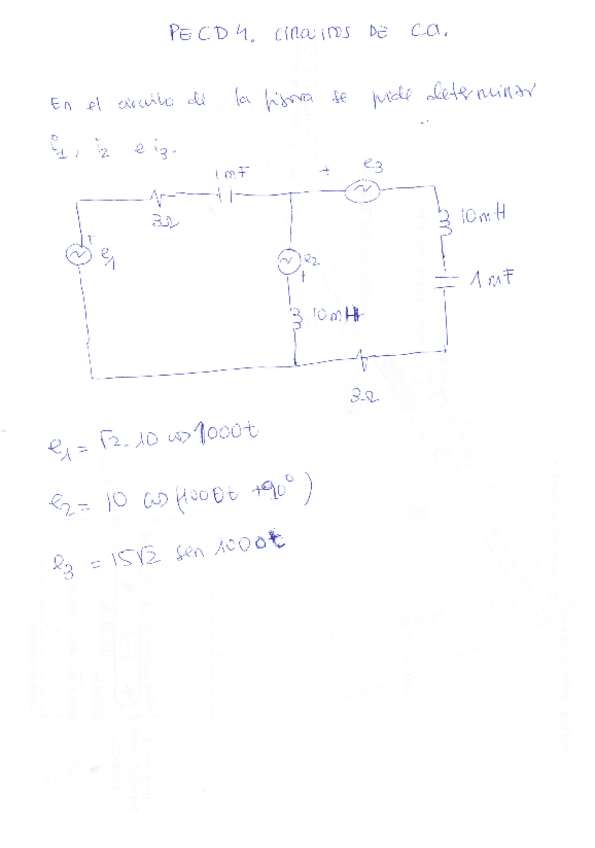 PECD4. CIRCUITOS DE C.A.
En el circuito de la figura se pide determinar
i1, i2 e i3.
1mF
+
e3
3Ω
10mH
+
e1
e2
+
1mF
10mH
3Ω
e1 = √2. 10 cos 1000t
e2 = 10 cos (1000t +90°)
e3 = 15√2 sen 1000t